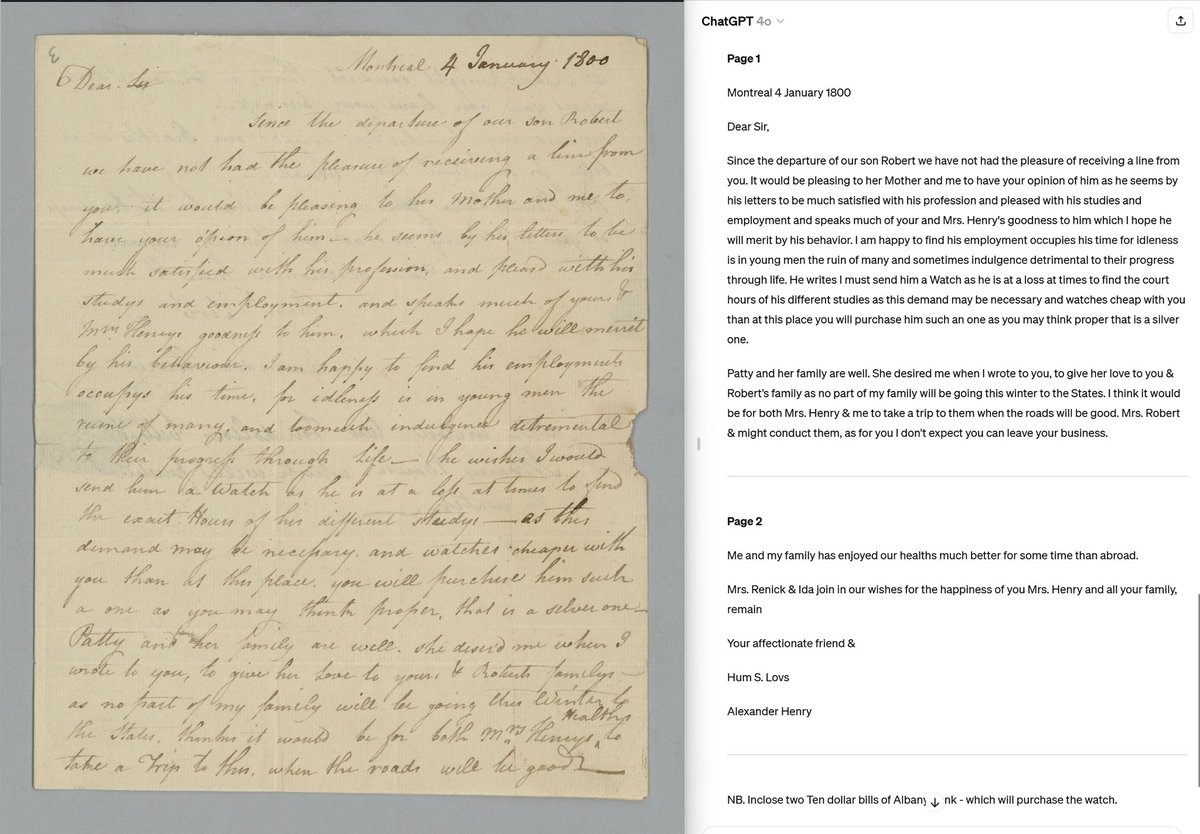 Montreal 4 January 1800
Dear Sir
Since the departure of our son Robert
we have not had the pleasure of receiving a line from
you, it would be pleasing to his Mother and me, to
have your opion of him — he seems by his letters to be
much satisfied with his profession, and pleasd with his
studys and employment, and speaks much of yours &
Mrs Henrys goodness to him, which I hope he will merrit
by his behaviour. I am happy to find his employments
occupys his time, for idleness is in young men the
ruine of many, and toomuch indulgence detremental
to their progress through Life — he wishes I would
send him a Watch as he is at a loss at times to find
the exact Hours of his different studys — as this
demand may be necessary. and watches cheaper with
you than at this place, you will purchise him such
a one as you may think proper, that is a silver one —
Patty and her family are well. she desird me when I
wrote to you, to give her Love to yours & Roberts familys —
as no part of my family will be going this Winter to
the States. thinks it would be for both Mrs Henrys Healths to
take a Trip to this, when the roads will be good —
ChatGPT 4o
Page 1
Montreal 4 January 1800
Dear Sir,
Since the departure of our son Robert we have not had the pleasure of receiving a line from
you. It would be pleasing to her Mother and me to have your opinion of him as he seems by
his letters to be much satisfied with his profession and pleased with his studies and
employment and speaks much of your and Mrs. Henry's goodness to him which I hope he
will merit by his behavior. I am happy to find his employment occupies his time for idleness
is in young men the ruin of many and sometimes indulgence detrimental to their progress
through life. He writes I must send him a Watch as he is at a loss at times to find the court
hours of his different studies as this demand may be necessary and watches cheap with you
than at this place you will purchase him such an one as you may think proper that is a silver
one.
Patty and her family are well. She desired me when I wrote to you, to give her love to you &
Robert's family as no part of my family will be going this winter to the States. I think it would
be for both Mrs. Henry & me to take a trip to them when the roads will be good. Mrs. Robert
& might conduct them, as for you I don't expect you can leave your business.
Page 2
Me and my family has enjoyed our healths much better for some time than abroad.
Mrs. Renick & Ida join in our wishes for the happiness of you Mrs. Henry and all your family,
remain
Your affectionate friend &
Hum S. Lovs
Alexander Henry
NB. Inclose two Ten dollar bills of Albany nk - which will purchase the watch.